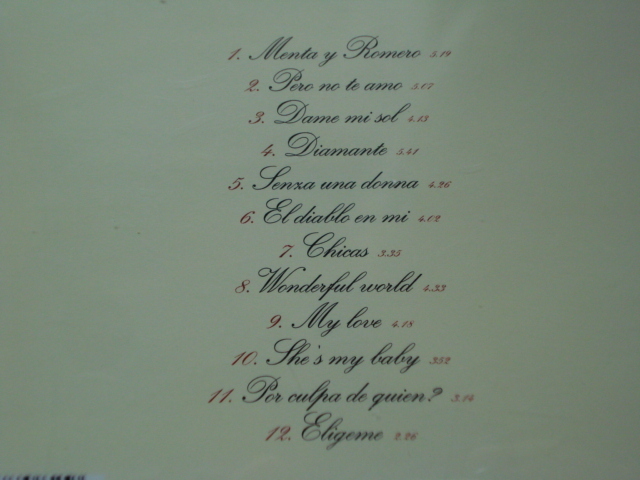 1. Menta y Romero 5.19
2. Pero no te amo 5.07
3. Dame mi sol 4.13
4. Diamante 5.41
5. Senza una donna 4.26
6. El diablo en mi 4.02
7. Chicas 3.35
8. Wonderful world 4.33
9. My love 4.18
10. She's my baby 3.52
11. Por culpa de quien? 3.14
12. Eligeme 2.26